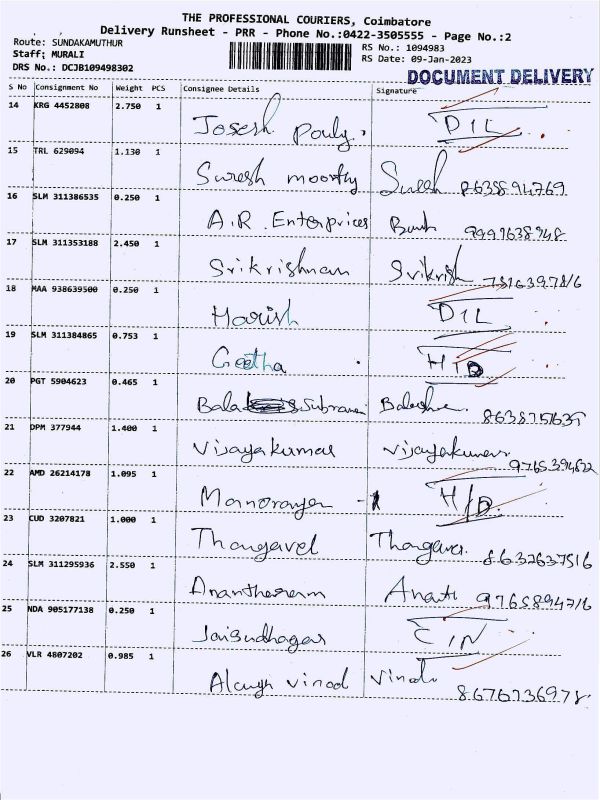 THE PROFESSIONAL COURIERS, Coimbatore
Delivery Runsheet - PRR - Phone No.:0422-3505555 - Page No.:2
Route: SUNDAKAMUTHUR
RS No.: 1094983
Staff: MURALI
RS Date: 09-Jan-2023
DRS No.: DCJB109498302
DOCUMENT DELIVERY
S No Consignment No Weight PCS Consignee Details Signature
14 KRG 4452808 2.750 1
Joseph Pauly. D/L
15 TRL 629094 1.130 1
Suresh moorthy Suresh 8638894769
16 SLM 311386535 0.250 1
A.R. Enterprices 9991638948
17 SLM 311353188 2.450 1
Srikrishnan Srikrish
18 MAA 938639500 0.250 1
Harish D/L
19 SLM 311384865 0.753 1
Geetha H/D
20 PGT 5904623 0.465 1
21 DPM 377944 1.400 1
Vijayakumar Vijayakumar
22 AMD 26214178 1.095 1
H/D
23 CUD 3207821 1.000 1
Thangavel 8632637516
24 SLM 311295936 2.550 1
9765894716
25 NDA 905177138 0.250 1
Jaisudhagar C/N
26 VLR 4807202 0.985 1
vinod 8676736978